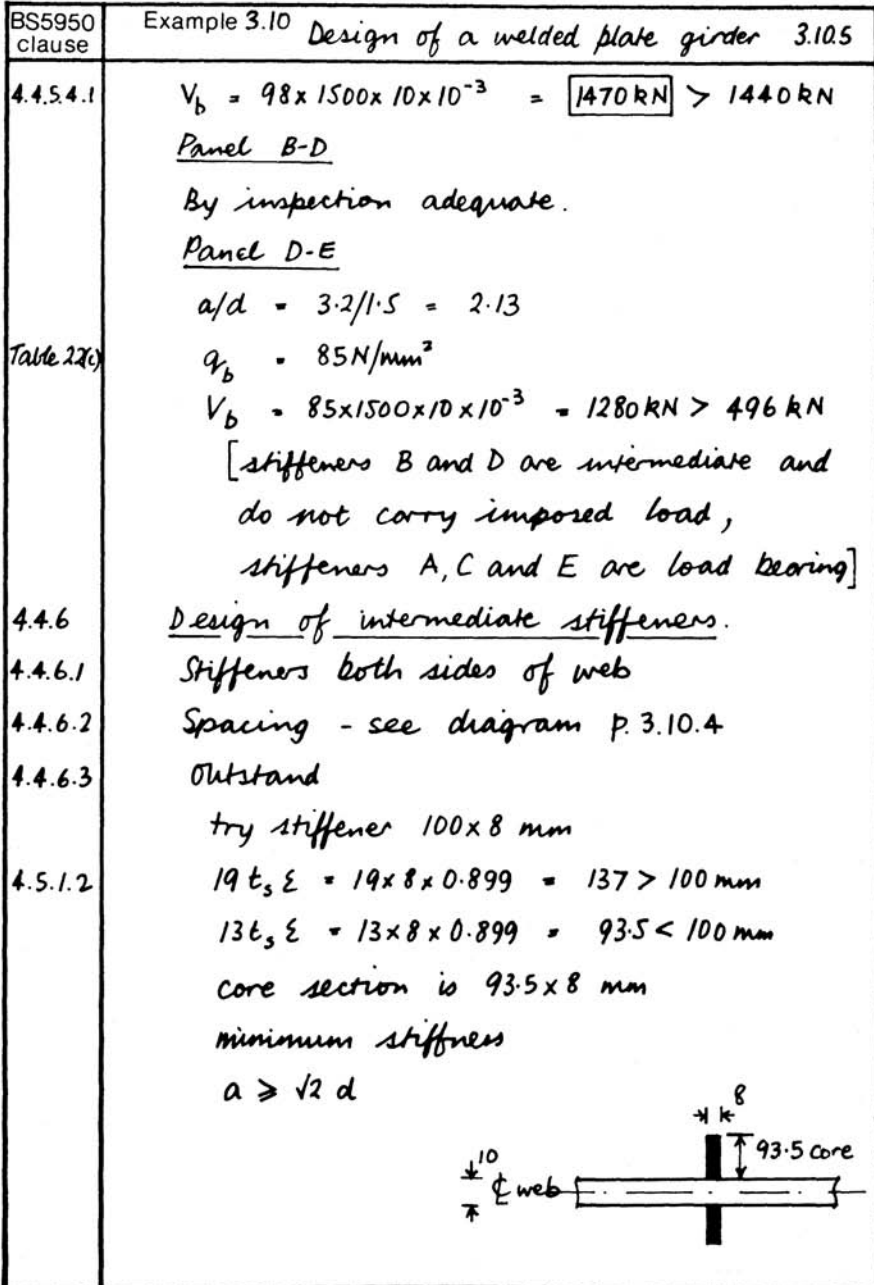 BS5950 clause
Example 3.10 Design of a welded plate girder 3.10.5
4.4.5.4.1 V_b = 98 x 1500 x 10 x 10⁻³ = 1470 kN > 1440 kN
Panel B-D
By inspection adequate.
Panel D-E
a/d = 3.2/1.5 = 2.13
Table 22(c) q_b = 85 N/mm²
V_b = 85 x 1500 x 10 x 10⁻³ = 1280 kN > 496 kN
[stiffeners B and D are intermediate and
do not carry imposed load,
stiffeners A, C and E are load bearing]
4.4.6 Design of intermediate stiffeners.
4.4.6.1 Stiffeners both sides of web
4.4.6.2 Spacing - see diagram p. 3.10.4
4.4.6.3 Outstand
try stiffener 100 x 8 mm
4.5.1.2 19 t_s ε = 19 x 8 x 0.899 = 137 > 100 mm
13 t_s ε = 13 x 8 x 0.899 = 93.5 < 100 mm
core section is 93.5 x 8 mm
minimum stiffness
a ⩾ √2 d
8
93.5 core
10
℄ web